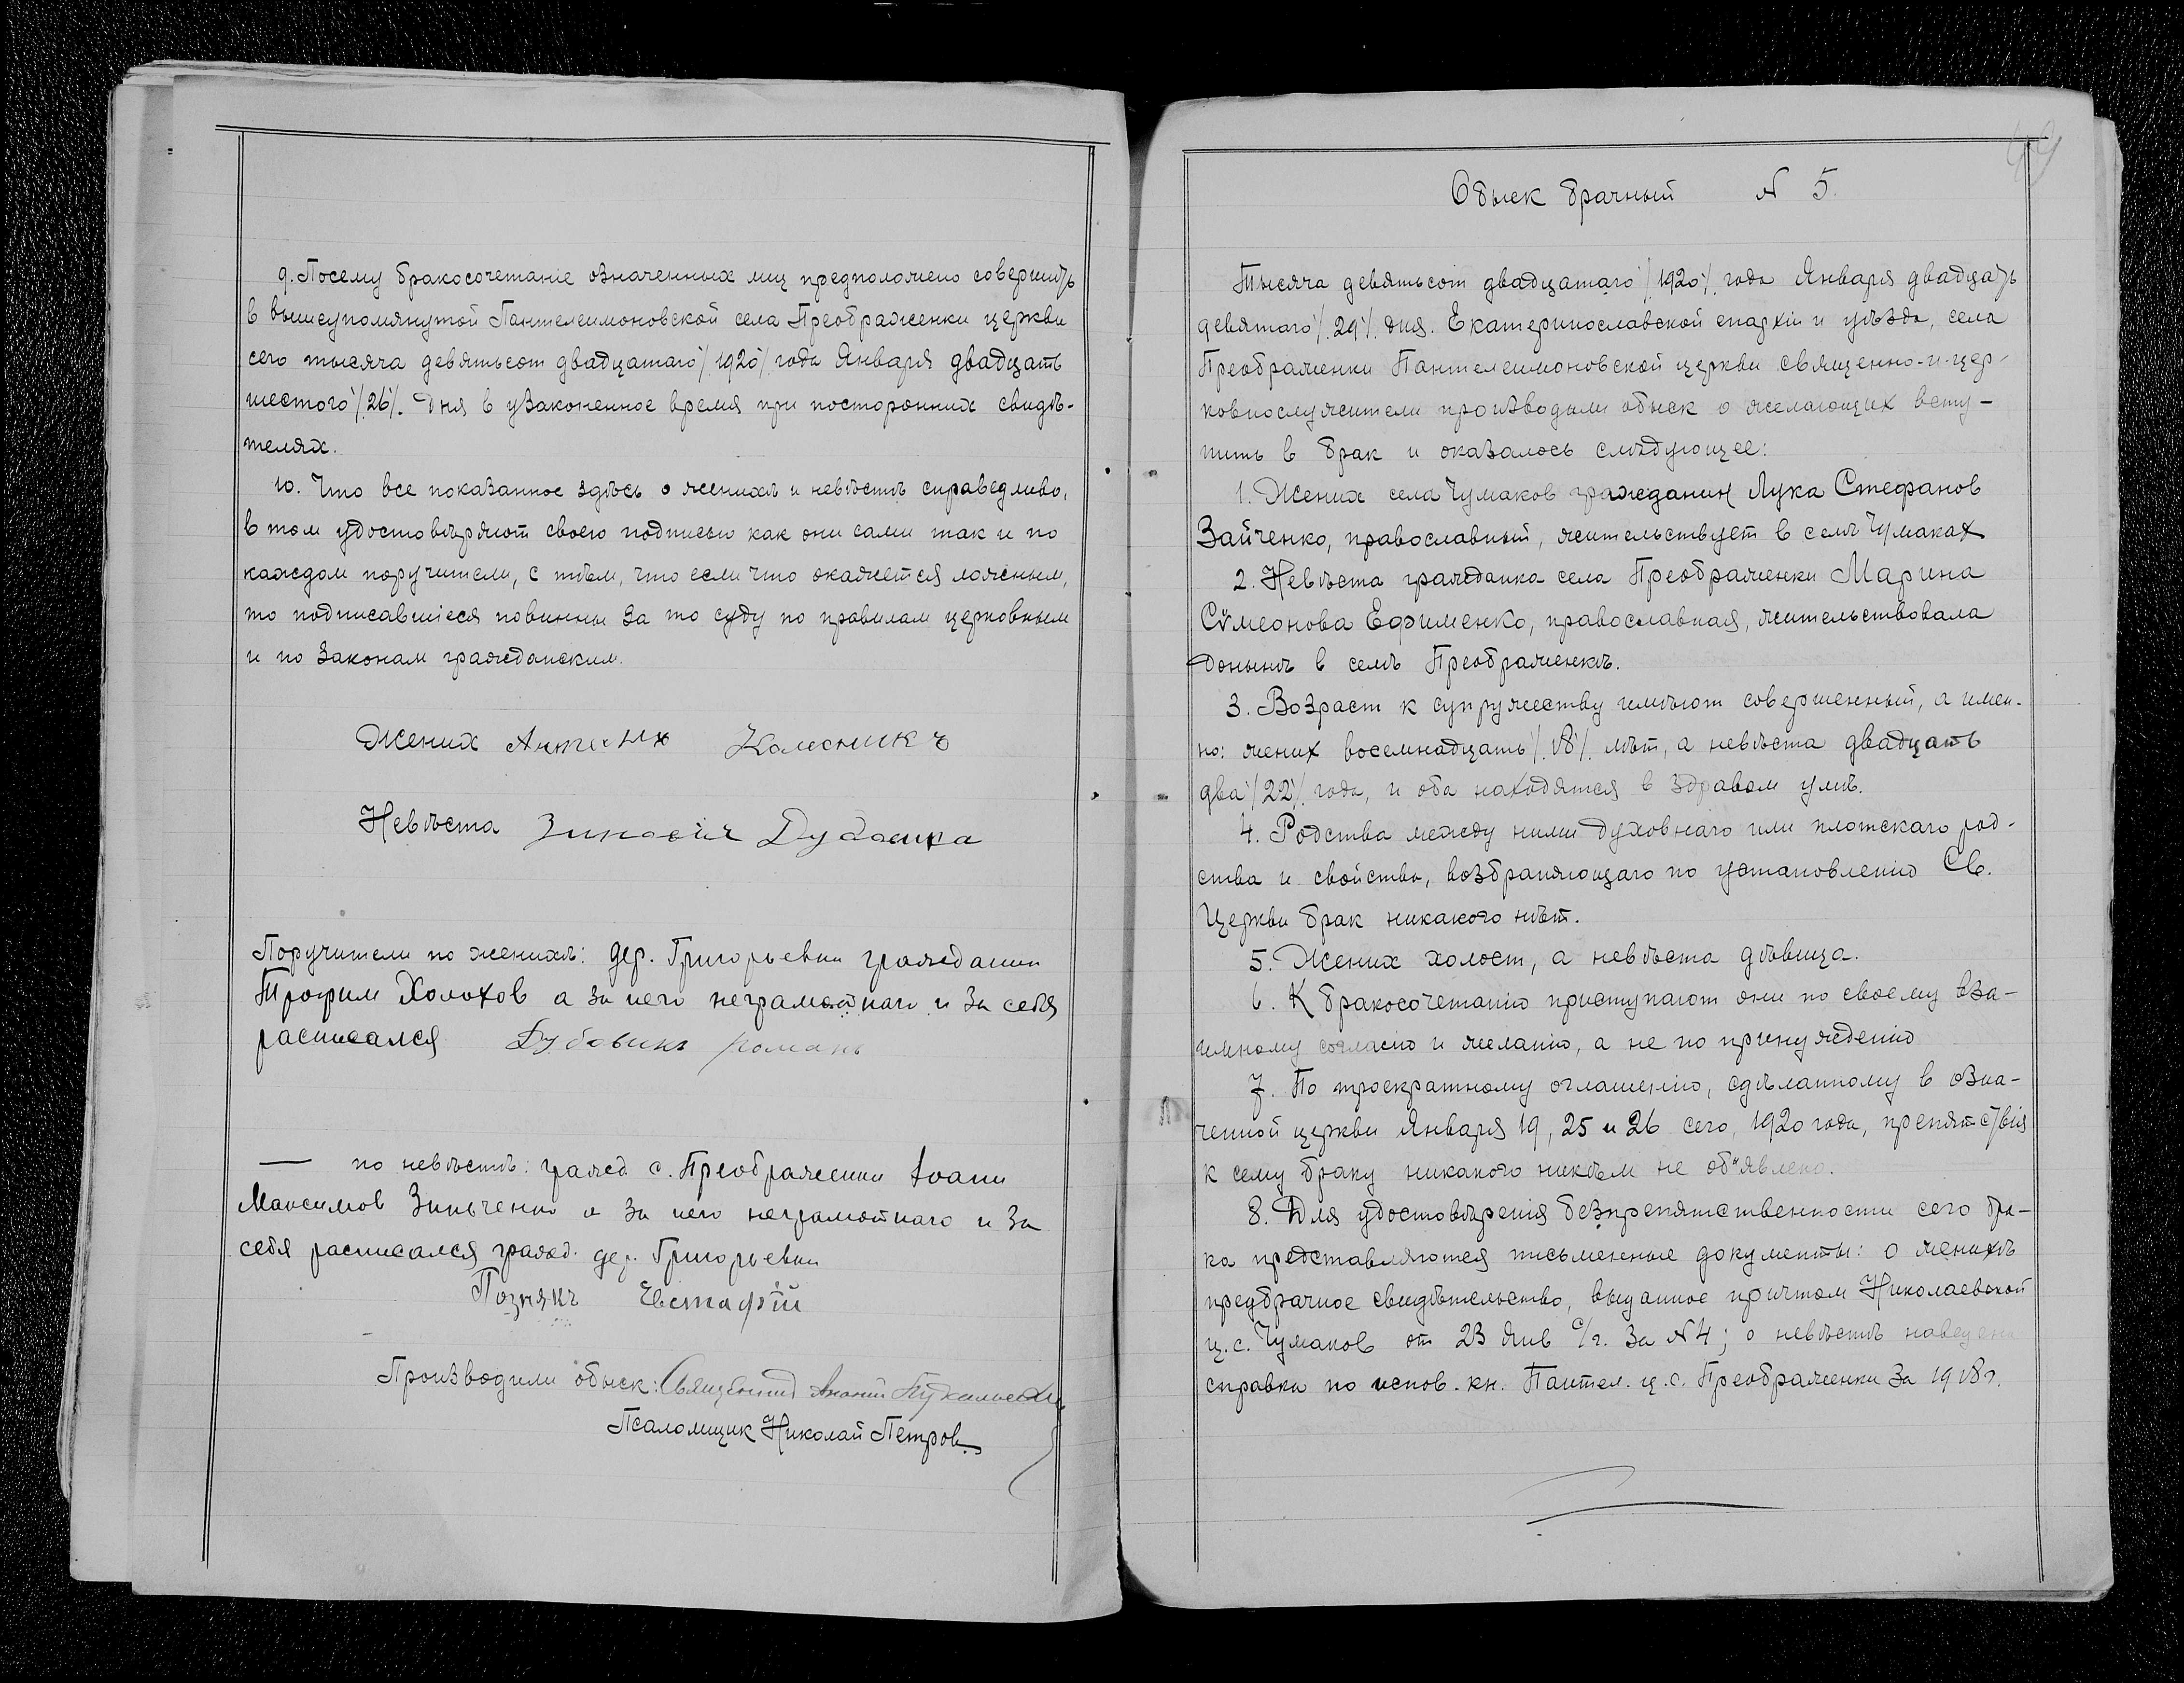 9. Посему бракосочетаніе означенных лиц предположено совершить
в вышеупомянутой Пантелеимоновской села Преображенки церкви
сего тысяча девятьсот двадцатаго /1920/ года Января двадцать
шестого /26/. Дня в узаконенное время при посторонних свидѣ-
телях.
10. Что все показанное здѣсь о женихѣ и невѣстѣ справедливо,
в том удостовѣряют своею подписью как они сами так и по
каждом поручители, с тѣм, что если что окажется ложным,
то подписавшіеся повинны за то суду по правилам церковным
и по законам гражданским.
Жених
Невѣста
Поручители по женихѣ: дер. Григорьевки гражданин
Трофим Холохов а за него неграмотнаго и за себя
расписался Дубовикъ романъ
— по невѣстѣ: гражд с. Преображенки Іоанн
Максимов Зинченко а за него неграмотнаго и за
себя расписался гражд. дер. Григорьевки
Познякъ Евстафій
Производили обыск: Священник
Псаломщик Николай Петров
49
Обыск брачный N 5.
Тысяча девятьсот двадцатаго /1920/. года Января двадцать
девятаго /.29/. дня. Екатеринославской епархіи и уѣзда, села
Преображенки Пантелеимоновской церкви священно-и-цер-
ковнослужители производили обыск о желающих всту-
пить в брак и оказалось слѣдующее:
1. Жених села Чумаков гражданин Лука Стефанов
Зайченко, православный, жительствует в селѣ Чумаках
2. Невѣста гражданка села Преображенки Марина
Сѵмеонова Ефименко, православная, жительствовала
донынѣ в селѣ Преображенкѣ.
3. Возраст к супружеству имѣют совершенный, а имен-
но: жених восемнадцать /.18/. лѣт, а невѣста двадцать
два /22/. года, и оба находятся в здравом умѣ.
4. Родства между ними духовнаго или плотскаго род-
ства и свойства, возбраняющаго по установленію Св.
Церкви брак никакого нѣт.
5. Жених холост, а невѣста дѣвица.
6. К бракосочетанію приступают они по своему вза-
имному согласію и желанію, а не по принужденію
7. По троекратному оглашенію, сдѣланному в озна-
ченной церкви Января 19, 25 и 26 сего, 1920 года, препятствія
к сему браку никакого никѣм не об"явлено.
8. Для удостовѣренія безпрепятственности сего бра-
ка представляются письменные документы: о женихѣ
предбрачное свидѣтельство, выданное причтом Николаевской
ц. с. Чумаков от 23 Янв с/г. за N 4; о невѣстѣ наведена
справка по испов. кн. Пантел. ц. с. Преображенки за 1918 г.